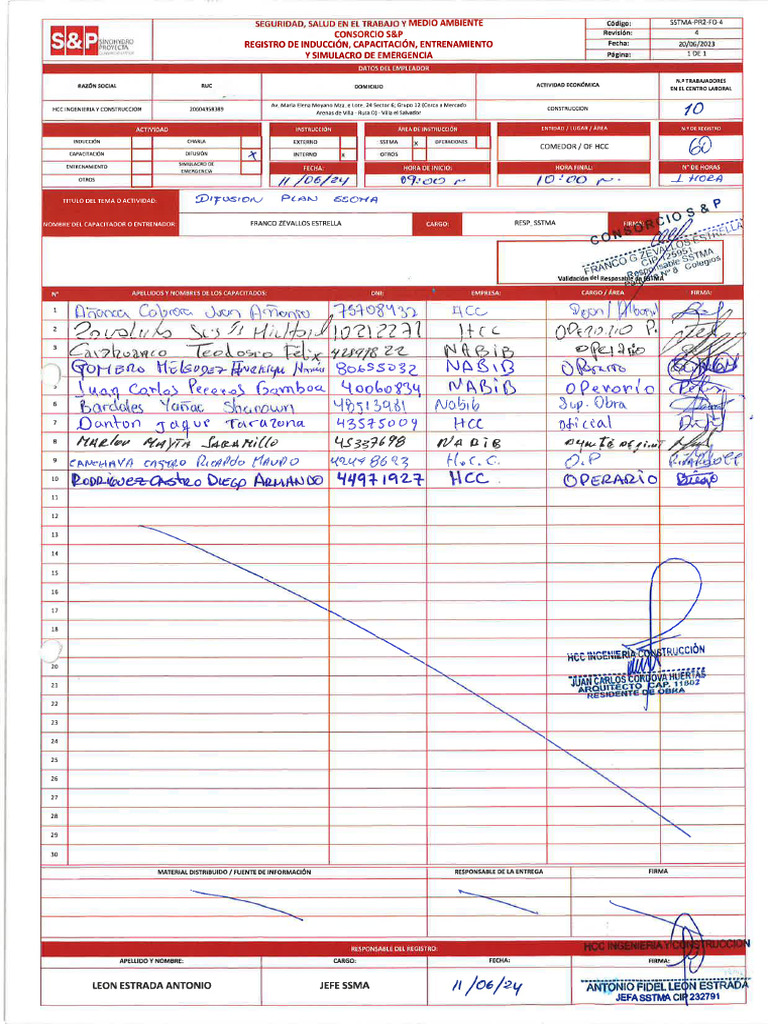 S&P SINOHYDRO PROYECTA
SEGURIDAD, SALUD EN EL TRABAJO Y MEDIO AMBIENTE
CONSORCIO S&P
REGISTRO DE INDUCCIÓN, CAPACITACIÓN, ENTRENAMIENTO
Y SIMULACRO DE EMERGENCIA
Código: SSTMA-PR2-FO-4
Revisión: 4
Fecha: 20/06/2023
Página: 1 DE 1
DATOS DEL EMPLEADOR
RAZÓN SOCIAL RUC DOMICILIO ACTIVIDAD ECONÓMICA N.º TRABAJADORES EN EL CENTRO LABORAL
HCC INGENIERIA Y CONSTRUCCION 20504358389 Av. María Elena Moyano Mza. e Lote. 24 Sector 6; Grupo 12 (Cerca a Mercado Arenas de Villa - Ruta D) - Villa el Salvador CONSTRUCCION 10
ACTIVIDAD INSTRUCCIÓN ÁREA DE INSTRUCCIÓN ENTIDAD / LUGAR / ÁREA N.º DE REGISTRO
INDUCCIÓN CHARLA EXTERNO SSTMA x OPERACIONES COMEDOR / OF HCC 60
CAPACITACIÓN DIFUSIÓN X INTERNO x OTROS
ENTRENAMIENTO SIMULACRO DE EMERGENCIA FECHA: HORA DE INICIO: HORA FINAL: N° DE HORAS
OTROS 11/06/24 09:00 10:00 1 HORA
TITULO DEL TEMA O ACTIVIDAD: DIFUSION PLAN SSOMA
NOMBRE DEL CAPACITADOR O ENTRENADOR: FRANCO ZEVALLOS ESTRELLA CARGO: RESP. SSTMA FIRMA:
CONSORCIO S & P
FRANCO G ZEVALLOS ESTRELLA
CIP 125951
Responsable SSTMA
N° 8 Colegios
Validación del Resposable de SSTMA
N° APELLIDOS Y NOMBRES DE LOS CAPACITADOS: DNI: EMPRESA: CARGO / ÁREA FIRMA:
1 Cabrera Juan 75708432 HCC
2 10212271 HCC OPERARIO P.
3 Teodosio Felix HABIB operario
4 GOMERO 80655032 HABIB
5 Juan Carlos Gamboa 40060834 HABIB operario
6 Bardales Yañac 48513981 Habib Sup. Obra
7 Danton Jaque Tarazona 43575009 HCC oficial
8 MARLON MAYTA JARAMILLO 45337698 HABIB
9 CANCHAYA CASTRO RICARDO MAURO 42498623 H.C.C. O.P
10 RODRIGUEZ CASTRO DIEGO ARMANDO 44971927 HCC OPERARIO Diego
11
12
13
14
15
16
17
18
19
20
21
22
23
24
25
26
27
28
29
30
HCC INGENIERIA CONSTRUCCIÓN
JUAN CARLOS CORDOVA HUERTAS
ARQUITECTO CAP. 11802
RESIDENTE DE OBRA
MATERIAL DISTRIBUIDO / FUENTE DE INFORMACIÓN RESPONSABLE DE LA ENTREGA FIRMA
RESPONSABLE DEL REGISTRO:
APELLIDO Y NOMBRE: CARGO: FECHA: FIRMA:
LEON ESTRADA ANTONIO JEFE SSMA 11/06/24
HCC INGENIERIA Y CONSTRUCCION
ANTONIO FIDEL LEON ESTRADA
JEFA SSTMA CIP 232791